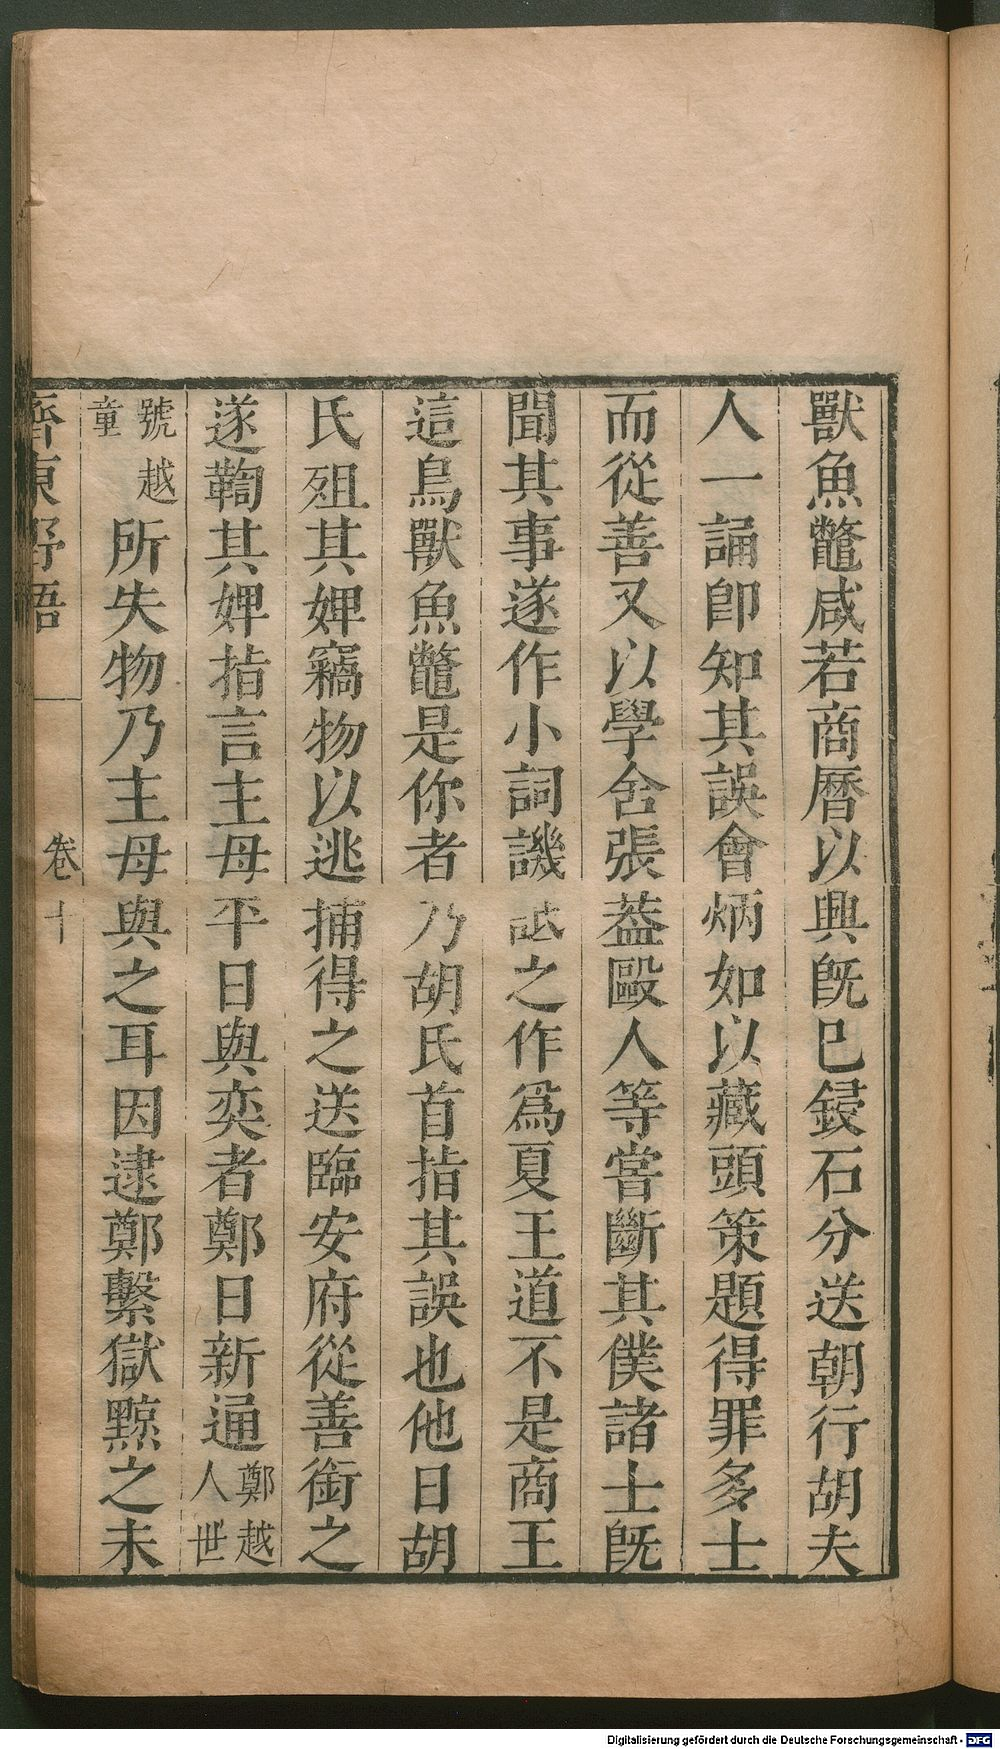 獸魚鼈咸若商曆以興旣已鋟石分送朝行胡夫
人一誦卽知其誤會炳如以藏頭策題得罪多士
而從善又以學舍張葢毆人等嘗斷其僕諸士旣
聞其事遂作小詞譏詆之作爲夏王道不是商王
這鳥獸魚鼈是你者乃胡氏首指其誤也他日胡
氏殂其婢竊物以逃捕得之送臨安府從善銜之
遂鞫其婢指言主母平日與奕者鄭日新通鄭越人世
號越童所失物乃主母與之耳因逮鄭繫獄黥之未
齊東野語 卷十
Digitalisierung gefördert durch die Deutsche Forschungsgemeinschaft - DFG